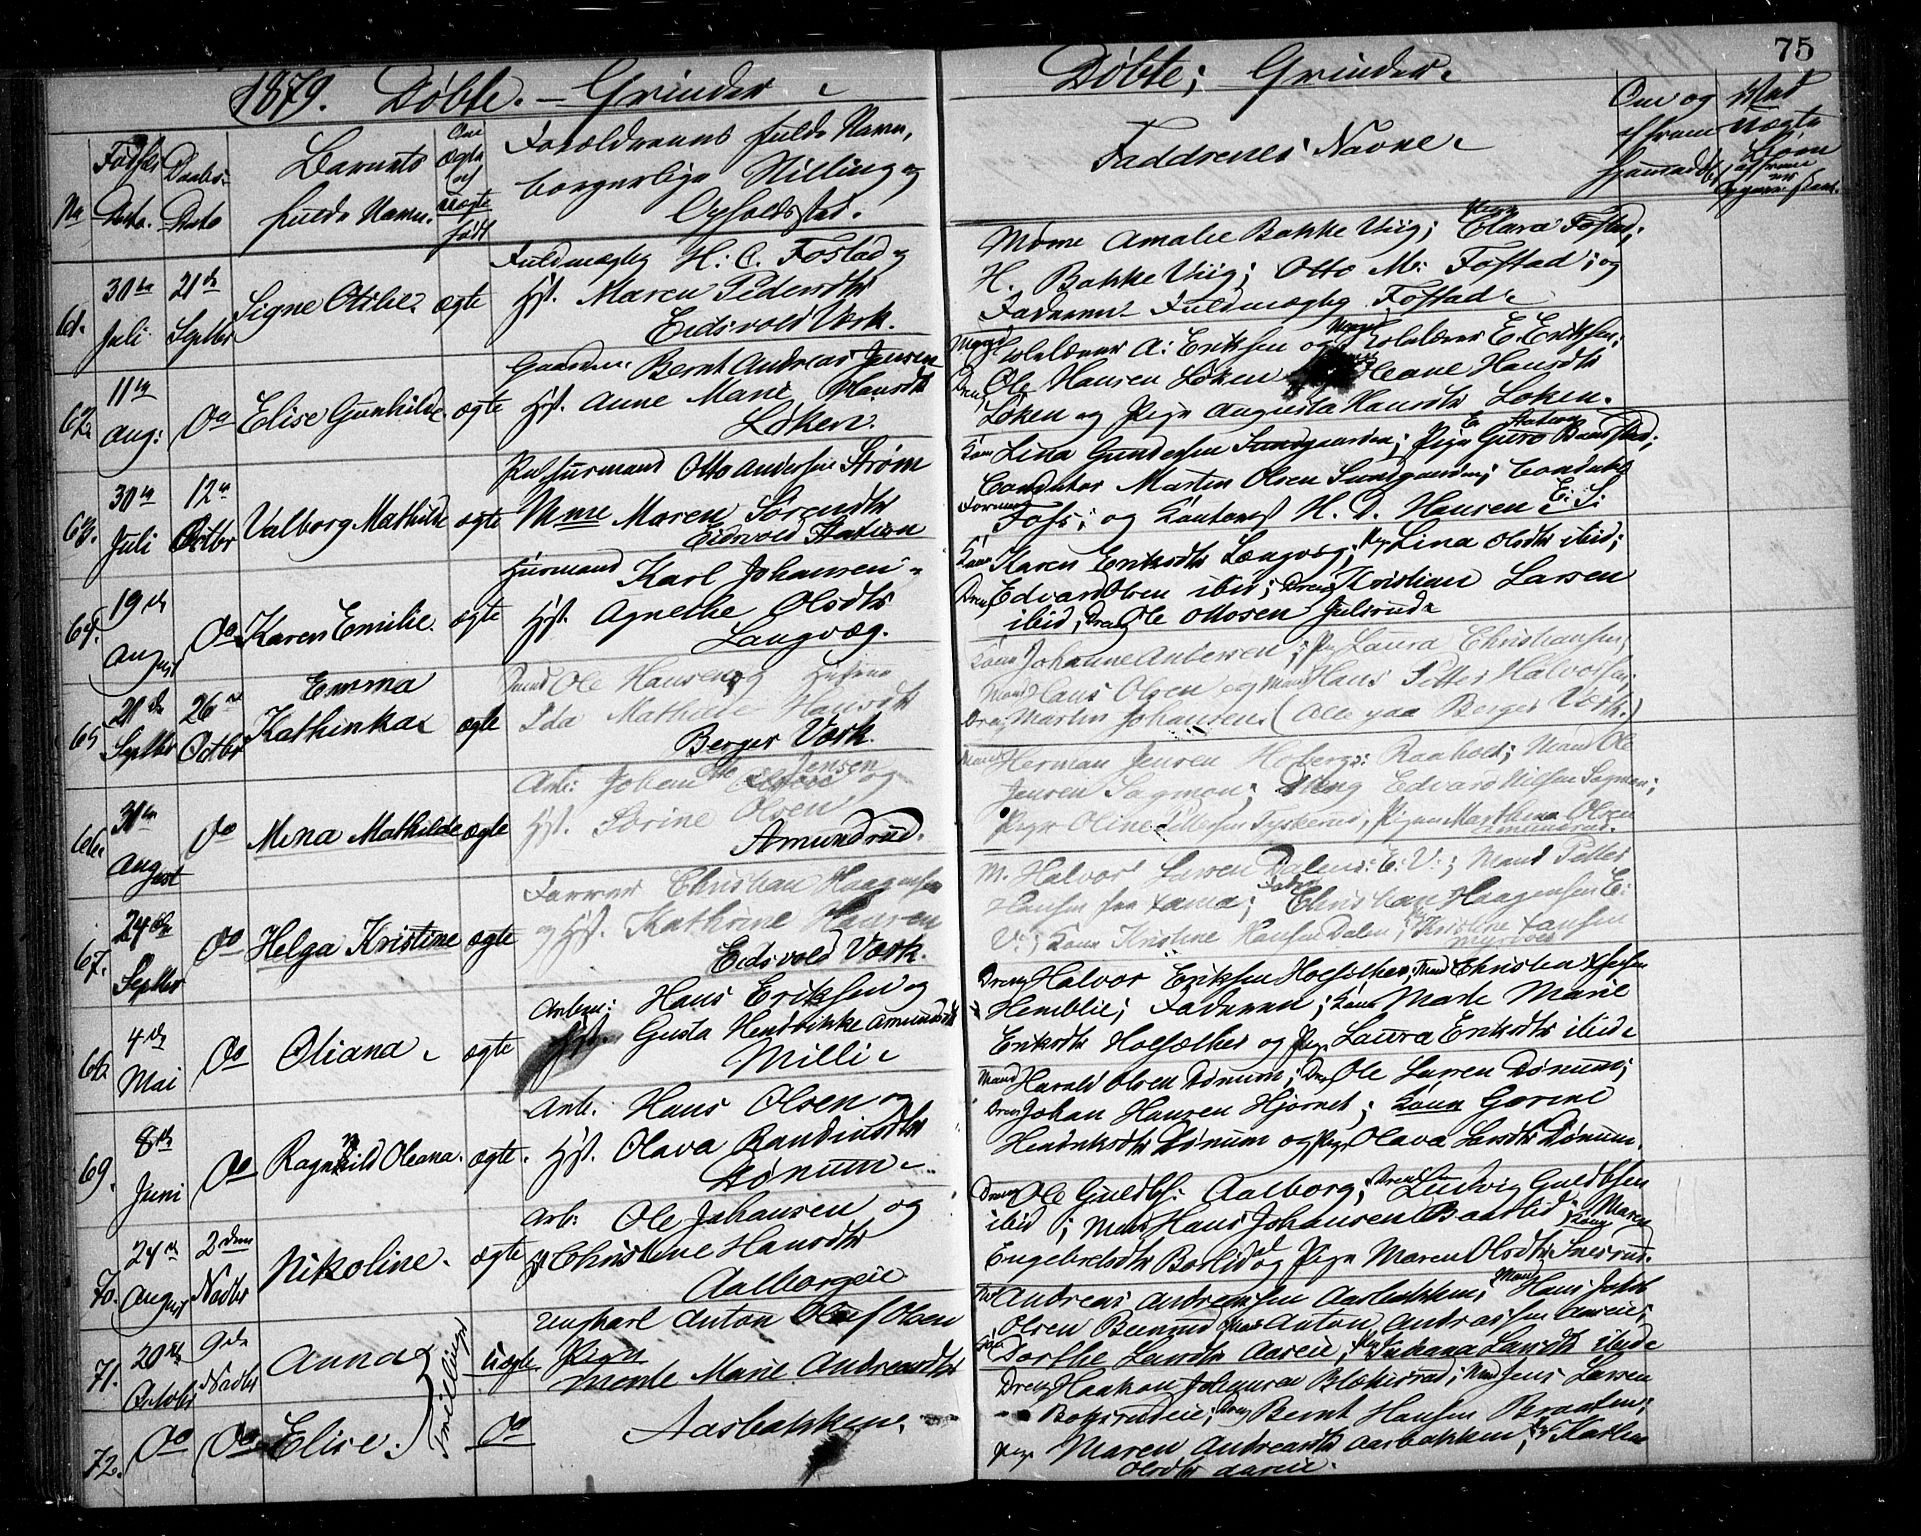 75
1879. Døbte. — Grinder
Døbte; Grinder.
No
Fødsels Dato.
Daabs-Dato
Barnets fulde Navn.
Om ægte ell uægte født
Forældrenes fulde Navn,
borgerlige Stilling og
Opholdsstad.
Faddrenes Navne
Om og
61.
30te Juli
21de Septbr
Signe Otilie.
ægte
Fuldmægtig H. C. Fostad og
Hst. Maren Pedersdtr
Eidsvold Værk.
Mdme Amalie Bakke Viig; Clara Fostad;
H. Bakke Viig; Otto M. Fostad; og
Faderen Fuldmægtig Fostad.
62
11te Aug:
Do
Elise Gunhilde
ægte
Bernt Andreas Jensen
Hst. Anne Marie Hansdtr
Løken.
A: Eriksen og E. Eriksen;
Ole Hansen Løken Oleane Hansdtr
Løken og Pige Augusta Hansdtr Løken.
63.
30te Juli
12te Octbr
Valborg Mathilde
ægte
Otto Andersen Strøm
Mme Maren Sørensdtr
Eidsvold Station
Kone Lina Gundersen Sundgaarden; Pige Guro
Conduktør Martin Olsen Sundgaarden; Conduktør
Foss; og H. D. Hansen E. S.
64.
19de August
Do
Karen Emilie.
ægte
Huusmand Karl Johansen
Hst. Agnethe Olsdtr
Langvæg.
Kone Karen Eriksdtr Langvæg; Pige Lina Olsdtr ibid;
Dreng Edvard Olsen ibid; Dreng Kristian Larsen
ibid, Dreng Ole Ottosen Julsrud
65
21de Septbr
26de Octbr
Emma
Kathinka
ægte
Ole Hansen og Hustru
Ida Mathilde Hansdtr
Berger Værk.
Kone Johanne Andersen; Pige Laura Christiansen;
Mand Hans Olsen og Mand Hans Petter Halvorsen
Dreng Martin Johansen. (Alle paa Berger Værk.)
66
31te August
Do
Mina Mathilde
ægte
Arb: Johan Jensen og
Hst. Sørine Olsen
Amundrud.
Mand Herman Jensen Raaholt; Mand Ole
Jensen Sagmoen; Dreng Edvard Nilsen Sagmoen;
Pige Oline Pettersen; Pigen Marthine Olsen
Amundrud.
67.
24de Septbr
Do
Helga Kristine
ægte
Former Christian Haagensen
og Hst. Kathrine Hansen
Eidsvold Værk.
M. Halvor Larsen Dalen: E. V.; Mand Petter
Hansen; Fader Christian Haagensen E.
V.; Kone Kristine Hansen Dalen; Kristine Hansen
68
4de Mai
Do
Oliana
ægte
Arbm; Hans Eriksen og
Hst. Gusta Hendrikke Amundsdtr
Milli
Dreng Halvor Eriksen; Mand Christen
Faderen; Kone Marte Marie
Eriksdtr og Pige Laura Eriksdtr ibid
69.
8de Juni
Do
Ragnhild Oleana.
ægte.
Arb. Hans Olsen og
Hst. Olava Bendiksdtr
Dønum
Mand Harald Olsen Dønum; Dreng Ole Larsen Dønum;
Dreng Johan Hansen Hjørnet; Kone Gorine
Henriksdtr Dønum og Pige Olava Larsdtr Dønum.
70.
24de August
2den Novbr
Nikoline.
ægte
Arb: Ole Johansen og
Hst Christine Hansdtr
Aalborgeie
Dreng Ole Guldbs: Aalborg; Dreng Ludvig Guldbsen
ibid; Mand Hans Johansen Baarlid; Kone Maren
Engebretsdtr Borlid og Pige Maren Olsdtr
71.
20de October
9de Novbr
Anna
Tvillinger
Uægte
Ungkarl Anton Oluf Olsen
Pigen
Marte Marie Andreasdtr
Aasbakken.
Andreas Andreassen Aasbakken; Mand Hans Jakob
Olsen; Anton Andreassen Aareie;
Dorthe Larsdtr Aareie; Indiana Larsdtr ibid
72.
Do
Do
Elise.
Do
Dreng Haakon Johansen; Mand Jens Larsen
Dreng Bernt Hansen Braaten;
Pige Maren Andreasdtr Aasbakken;
Olsdtr Aareie.